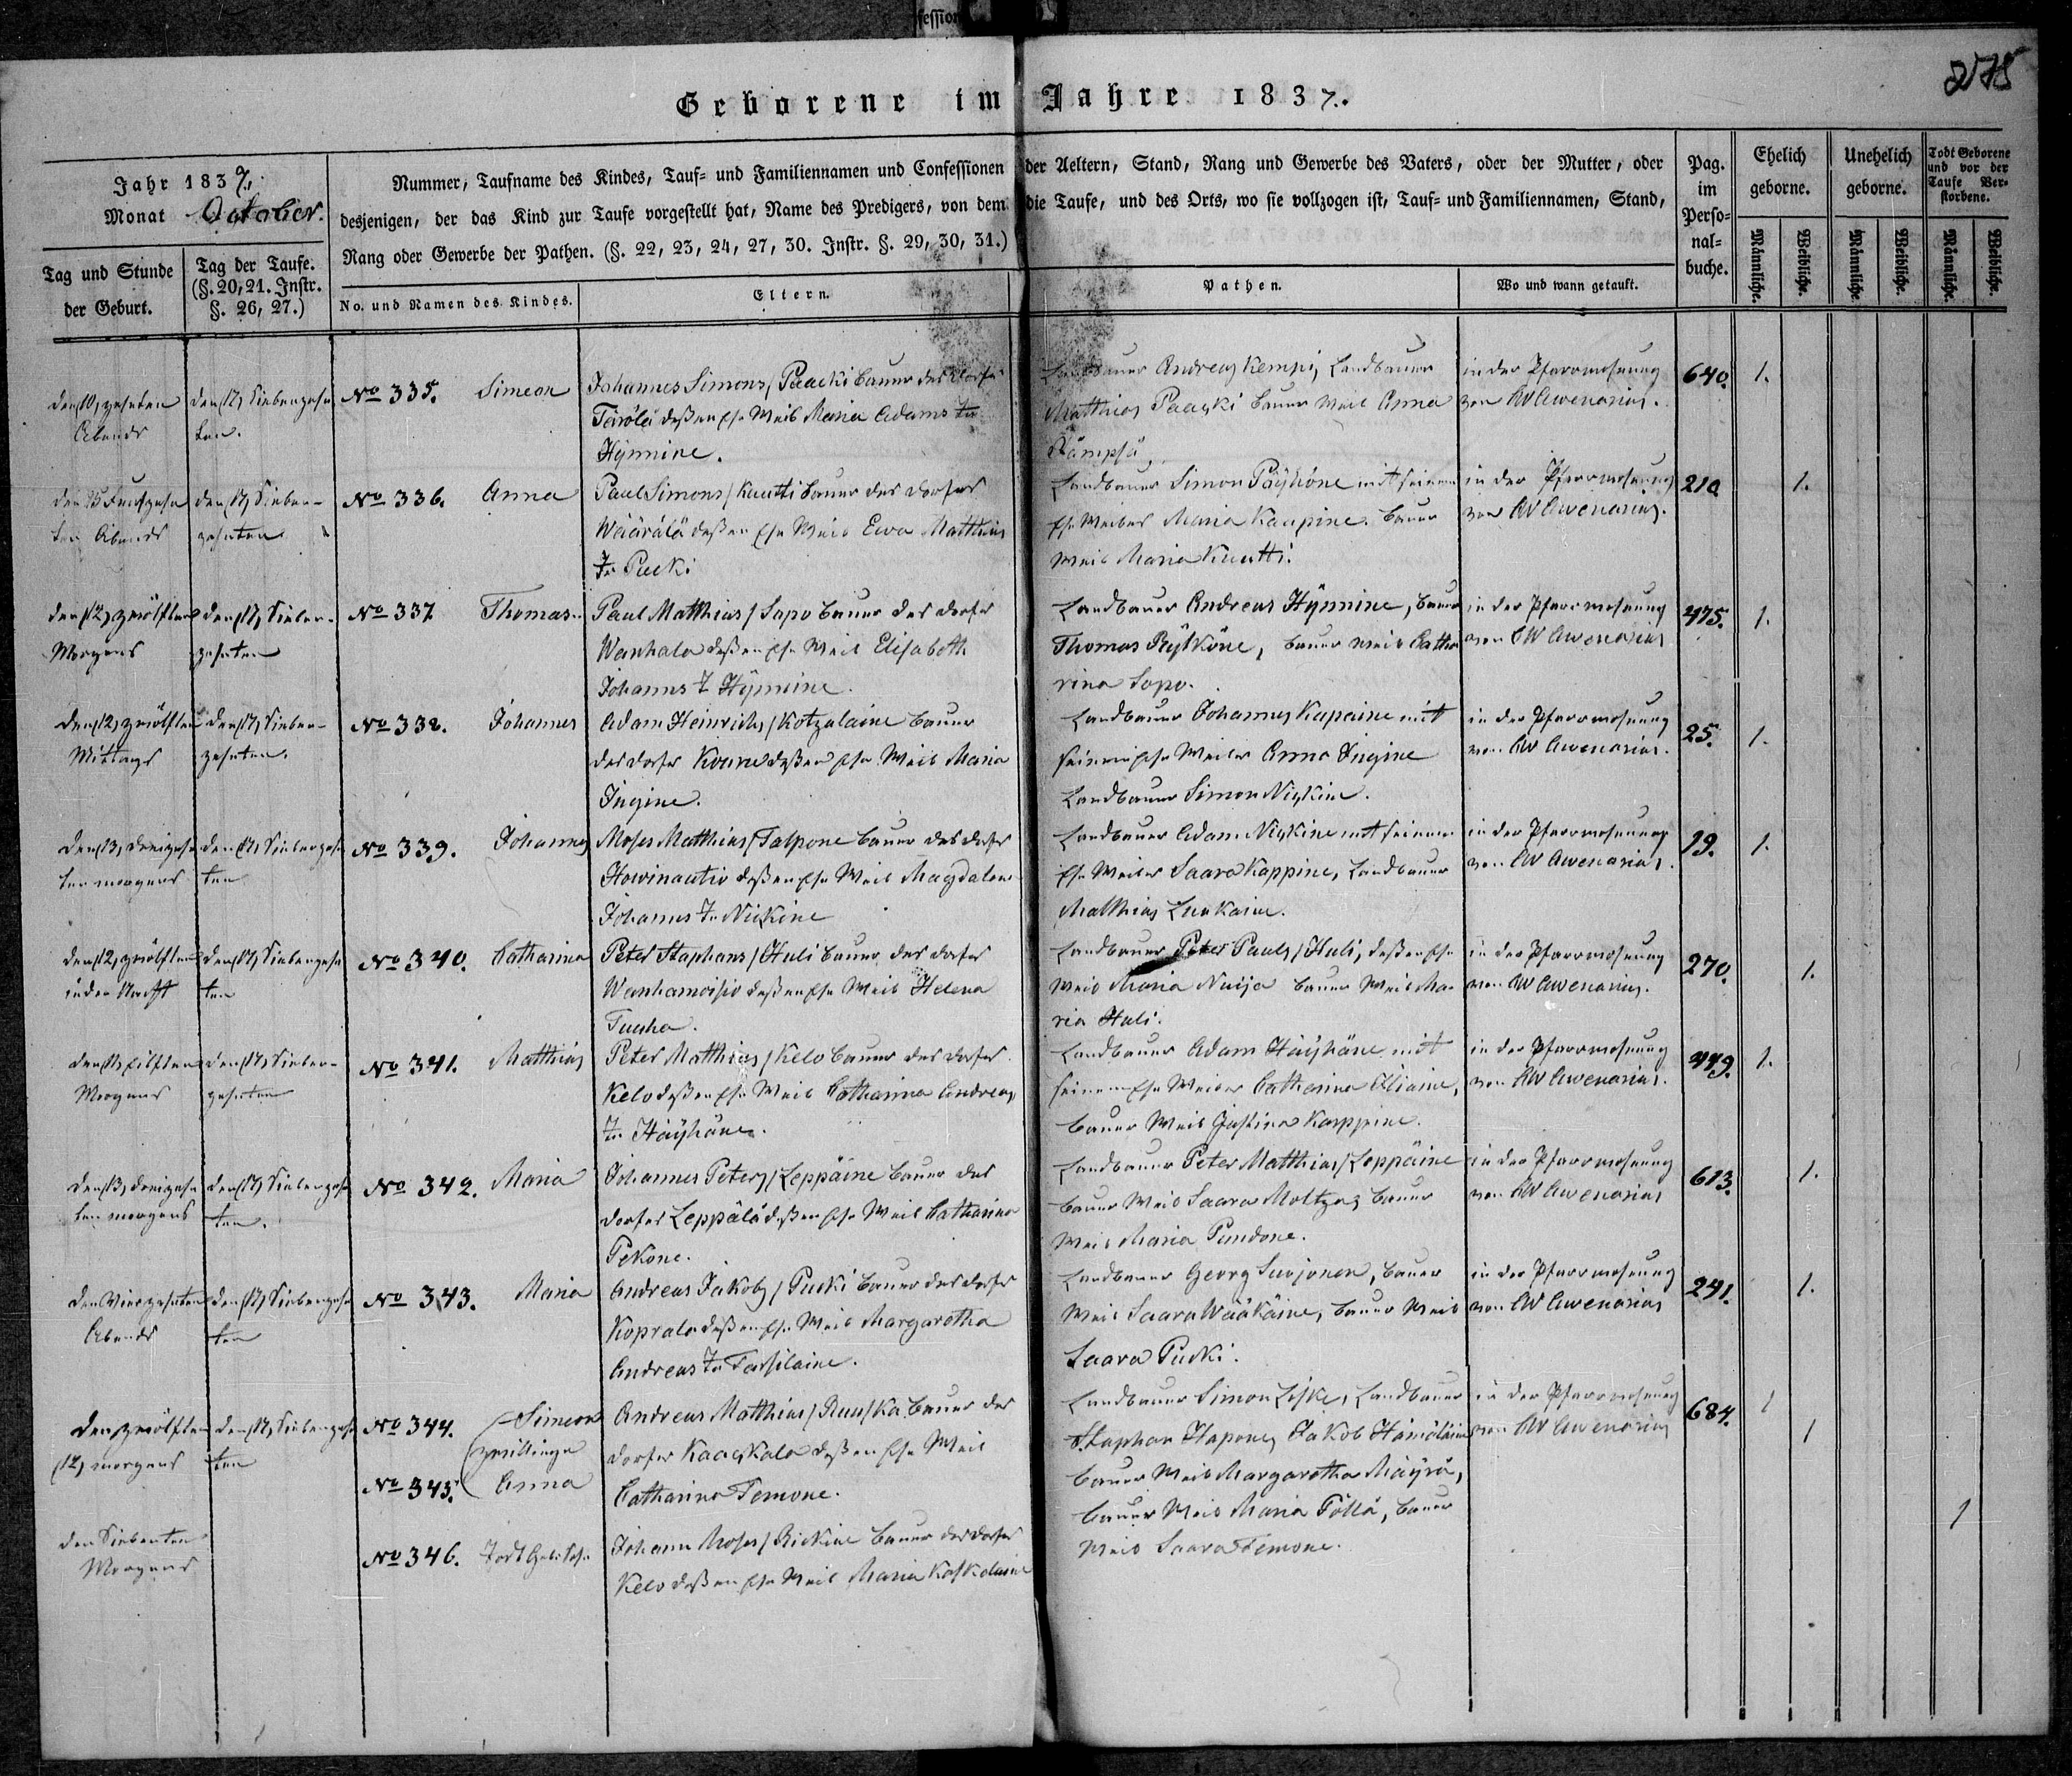 275
Geborene im Jahre 1837.
Jahr 1837.
Monat October.
Nummer, Taufname des Kindes, Tauf= und Familiennamen und Confessionen der Aeltern, Stand, Rang und Gewerbe des Vaters, oder der Mutter, oder
desjenigen, der das Kind zur Taufe vorgestellt hat, Name des Predigers, von dem die Taufe, und des Orts, wo sie vollzogen ist, Tauf= und Familiennamen, Stand,
Rang oder Gewerbe der Pathen. (§. 22, 23, 24, 27, 30. Instr. §. 29, 30, 31.)
Pag.
im
Perso=
nal=
buche.
Ehelich
geborne.
Unehelich
geborne.
Todt Geborene
und vor der
Taufe Ver=
storbene.
Männliche.
Weibliche.
Männliche.
Weibliche.
Männliche.
Weibliche.
Tag und Stunde
der Geburt.
Tag der Taufe.
(§. 20, 21. Instr.
§. 26, 27.)
No. und Namen des Kindes.
Eltern.
Pathen.
Wo und wann getauft.
den 10, zehnten
Abends
den 17, Siebenzehn
ten.
No 335. Simeon
Johannes Simons/Paacki bauer des dorfes
deßen Eh. Weib Maria Adams Tr
Hÿnnine.
Landbauer Andreas Kempi, Landbauer
Matthias Paaski bauer Weib Anna
Kämpsä,
in der Pfarrwohnung
von AW Awenarius.
640. 1.
den 15 Funfzehn
ten Abends
den 17, Sieben-
zehnten
No 336. Anna
Paul Simons/Kuutti bauer des dorfes
Wäärälä deßen Eh. Weib Ewa Matthias
Tr Pucki
Landbauer Simon Päÿhöne mit seinem
Eh. Weibe Maria Kaupine. bauer
Weib Maria Kuutti.
in der Pfarrwohnung
von AW Awenarius.
210 1.
den 12, zwölften
Morgens
den 17, Sieben-
zehnten
No 337 Thomas.
Paul Matthias/Sapo bauer des dorfes
Wanhala deßen Eh. Weib Elisabeth
Johanns T. Hÿnnine.
Landbauer Andreas Hÿnnine, bauer
Thomas Rÿtköne, bauer Weib Catha
rina Sopo.
in der Pfarrwohnung
von AW Awenarius
475. 1.
den 12, zwölften
Mittags
den 17, Sieben-
zehnten.
No 338. Johannes
Adam Heinrichs/Kotzalaine bauer
des dorfes deßen Eh. Weib Maria
Ingine.
Landbauer Johannes Kapaine mit
seinem Eh. Weibe Anna Ingine
Landbauer Simon Niskine.
in der Pfarrwohnung
von AW Awenarius.
25. 1.
den 13, dreizehn
ten morgens
den 17, Siebenzehn
ten
No 339. Johannes
Moses Matthias/Talpone bauer des dorfes
deßen Eh. Weib Magdalena
Johanns Tr. Nickine
Landbauer Adam Niskine mit seinem
Eh. Weibe Saara Kappine, Landbauer
Matthias Luukaine.
in der Pfarrwohnung
von AW Awenarius.
19. 1.
den 12, zwölften
in der Nacht
den 17, Siebenzehn
ten
No 340. Catharina
Peter Staphans/Huli bauer des dorfes
deßen Eh. Weib Helena
Tuusha.
Landbauer Peter Pauls/Huli, deßen Eh.
Weib Maria Nuija bauer Weib Ma-
ria Huli.
in der Pfarrwohnung
von AW Awenarius.
270. 1.
den 11, eilften
Morgens
den 17, Sieben-
zehnten
No 341. Matthias
Peter Matthias/Kelo bauer des dorfes
Kelo deßen Eh. Weib Catharina Andreas
Tr Häÿhäne.
Landbauer Adam Häÿhäne mit
seinem Eh. Weibe Catharina
bauer Weib Justina Karppine.
in der Pfarrwohnung
von AW Awenarius.
449. 1.
den 13, dreizehn
ten morgens
den 17, Siebenzehn
ten.
No 342. Maria
Johannes Peters/Leppäine bauer des
dorfes Leppälä deßen Eh. Weib Catharina
Pekone.
Landbauer Peter Matthias/Leppäine
bauer Weib Saara Moltzas, bauer
Weib Maria Pundone.
in der Pfarrwohnung
von AW Awenarius
613. 1.
den Vierzehnten
Abends
den 17, Siebenzehn
ten
No 343. Maria
Andreas Jakobs/Pucki bauer des dorfes
Koprala deßen Eh. Weib Margaretha
Andreas Tr Tassilaine.
Landbauer Georg Suojonen, bauer
Weib Saara Wääkäine, bauer Weib
Saara Pucki.
in der Pfarrwohnung
von AW Awenarius
241. 1.
den zwölften
12, morgens
den 17, Siebenzehn
ten
No 344. Simeon
zwillinge
No 345. Anna
Andreas Matthias/Ruuska bauer des
dorfes Kaaskala deßen Eh. Weib
Catharina Temone.
Landbauer Simon Liske, Landbauer
Staphan Hapone, Jakob Hämäläine
bauer Weib Margaretha Mäÿrä,
bauer Weib Maria Töllä, bauer
Weib Saara Temone.
in der Pfarrwohnung
von AW Awenarius
684. 1
1
den Siebenten
Morgens
No 346. Todt Geb. Sohn
Johann Moses/Rickine bauer des dorfes
Kelo deßen Eh. Weib Maria Koskelaine
1